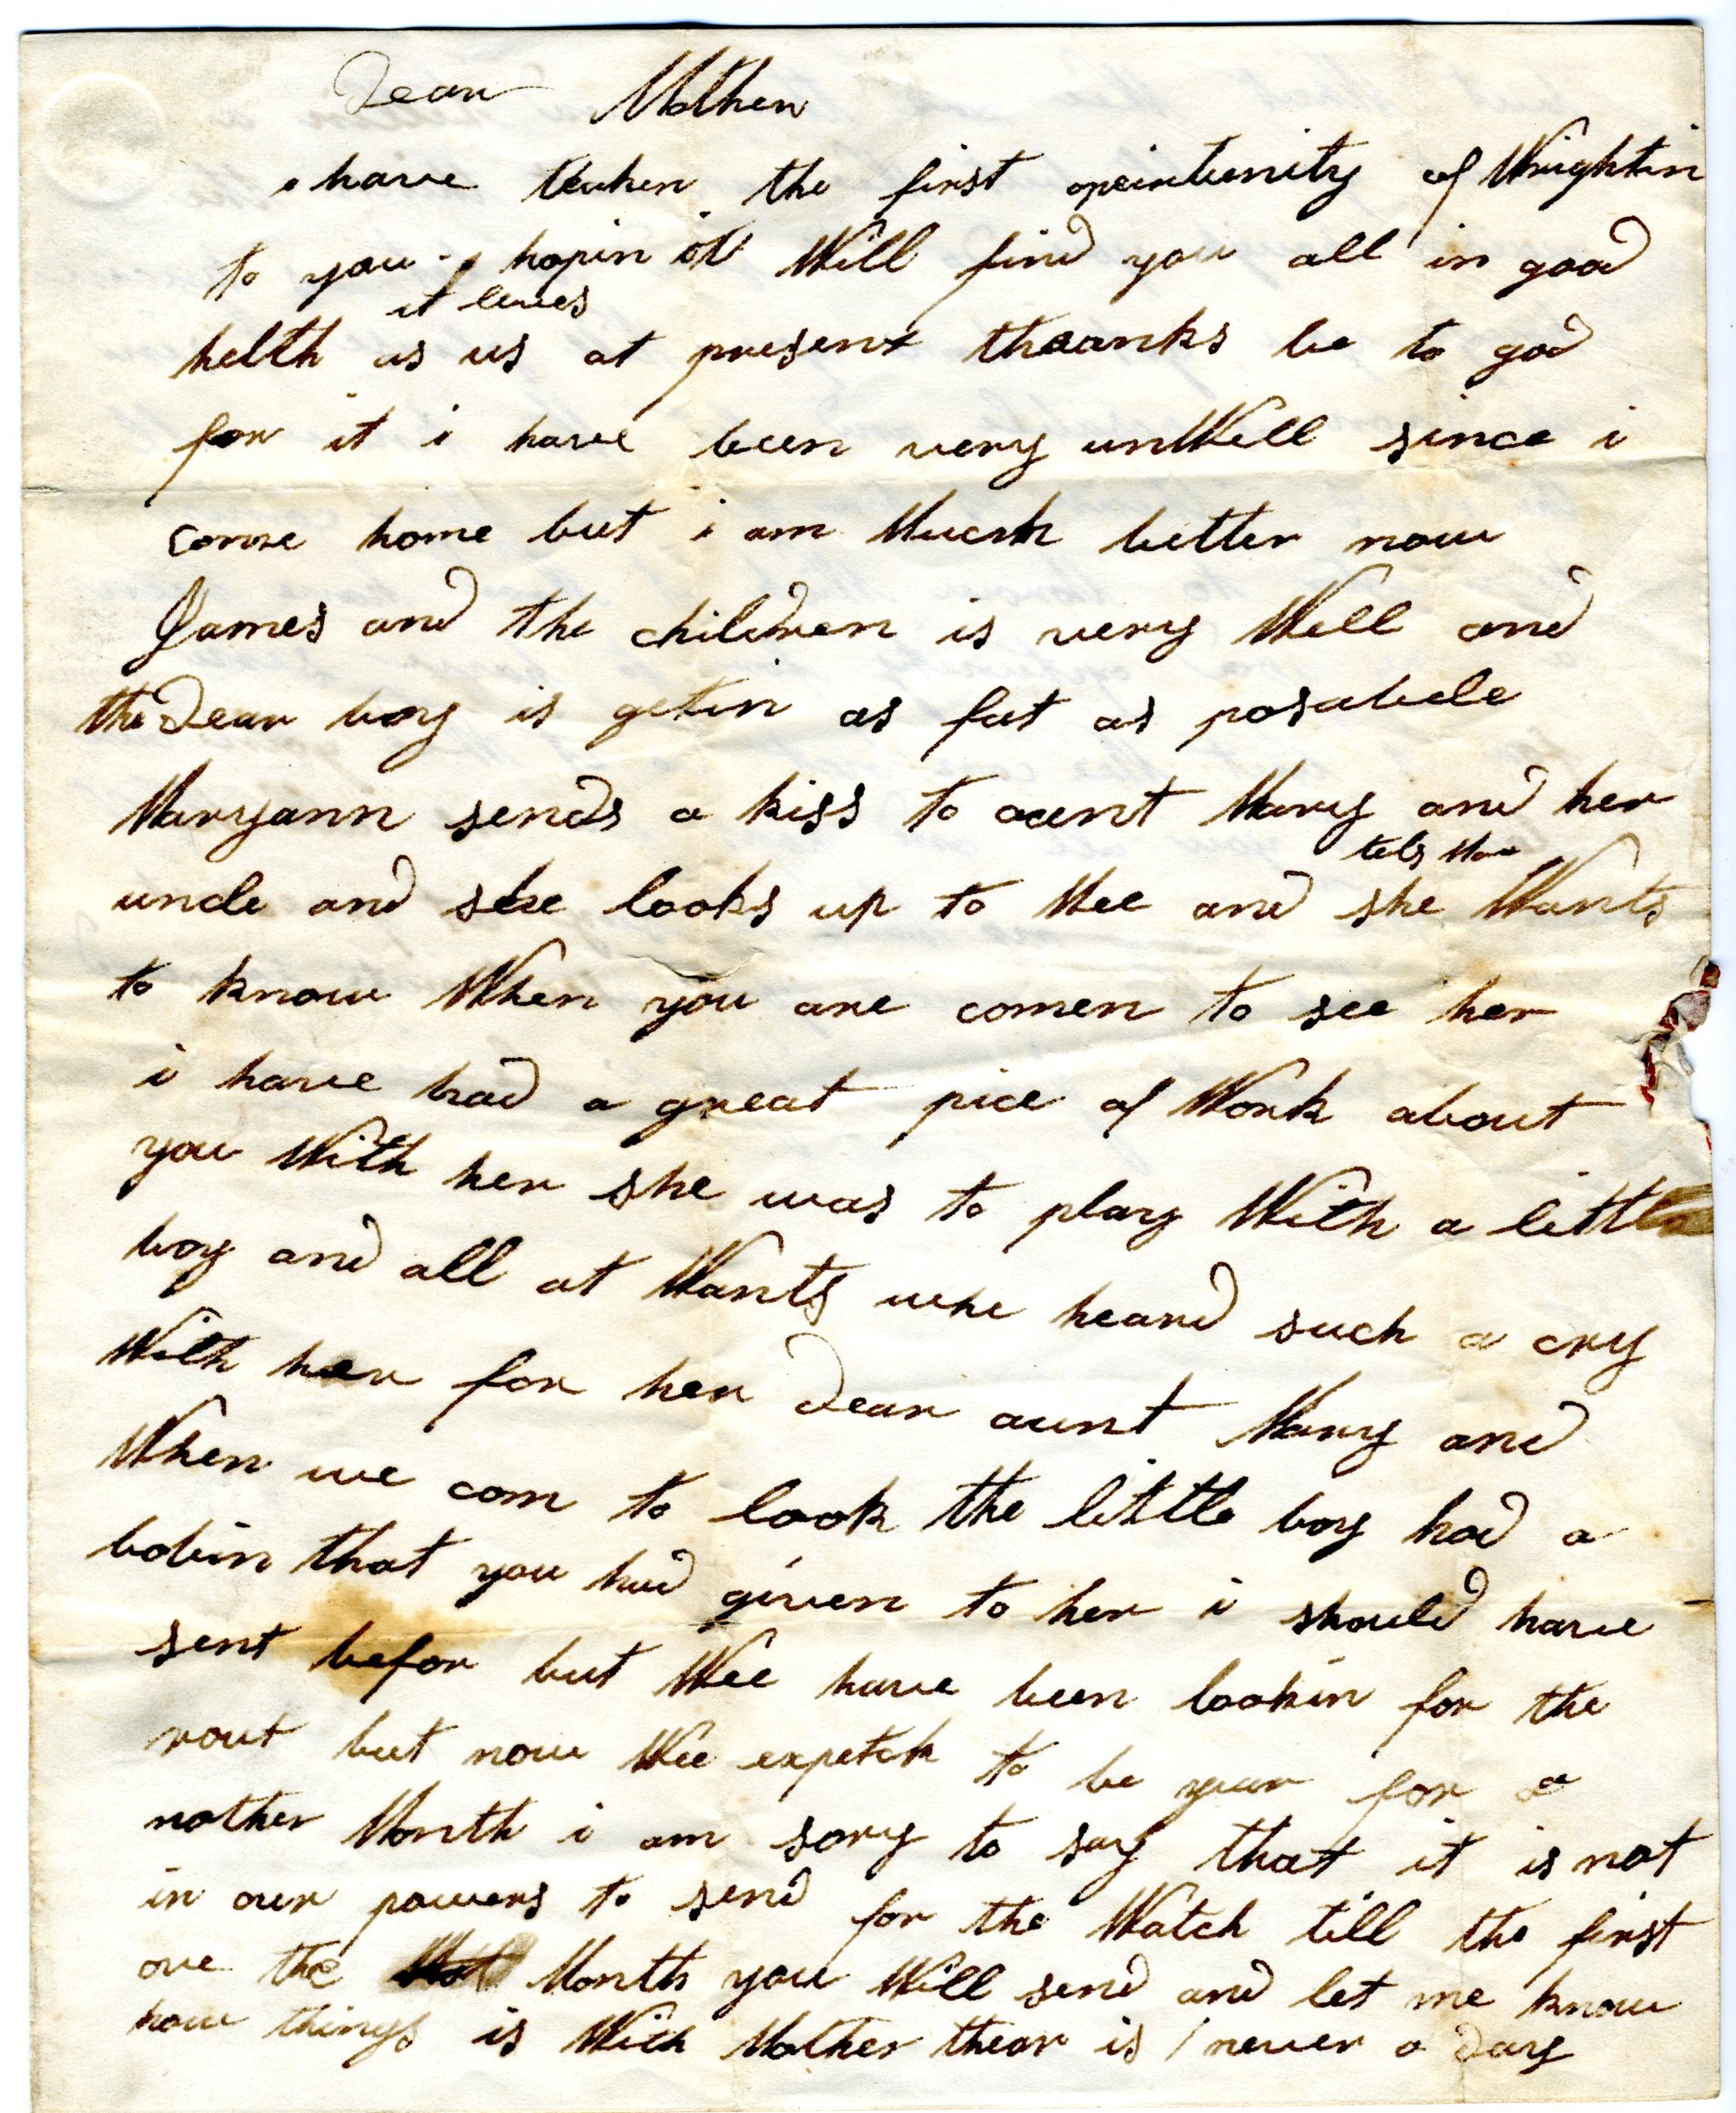 Dear Mother
i have taken the first opeirtunity of Wrightin
to you hopin it Will find you all in good
it leues
helth as us at present thaanks be to god
for it i have been very unWell since i
come home but i am Much better now
James and the children is very Well and
the Dear boy is getin as fat as posabele
Maryann sends a kiss to aent Mary and her
tels Mee
uncle and shee looks up to Mee and she Wants
to know When you are comen to see her
i have had a great pice of Work about
you With her she was to play With a little
boy and all at Wants whe heard such a cry
With her for her Dear aunt Mary and
When we com to look the little boy had a
bobin that you had given to her i should have
sent befor but Wee have been lookin for the
rout but now Wee expetck to be year for a
nother Month i am sory to say that it is not
in our powers to send for the Watch till the first
ove the Month you Will send and let me know
how things is With Mother thear is never a Day